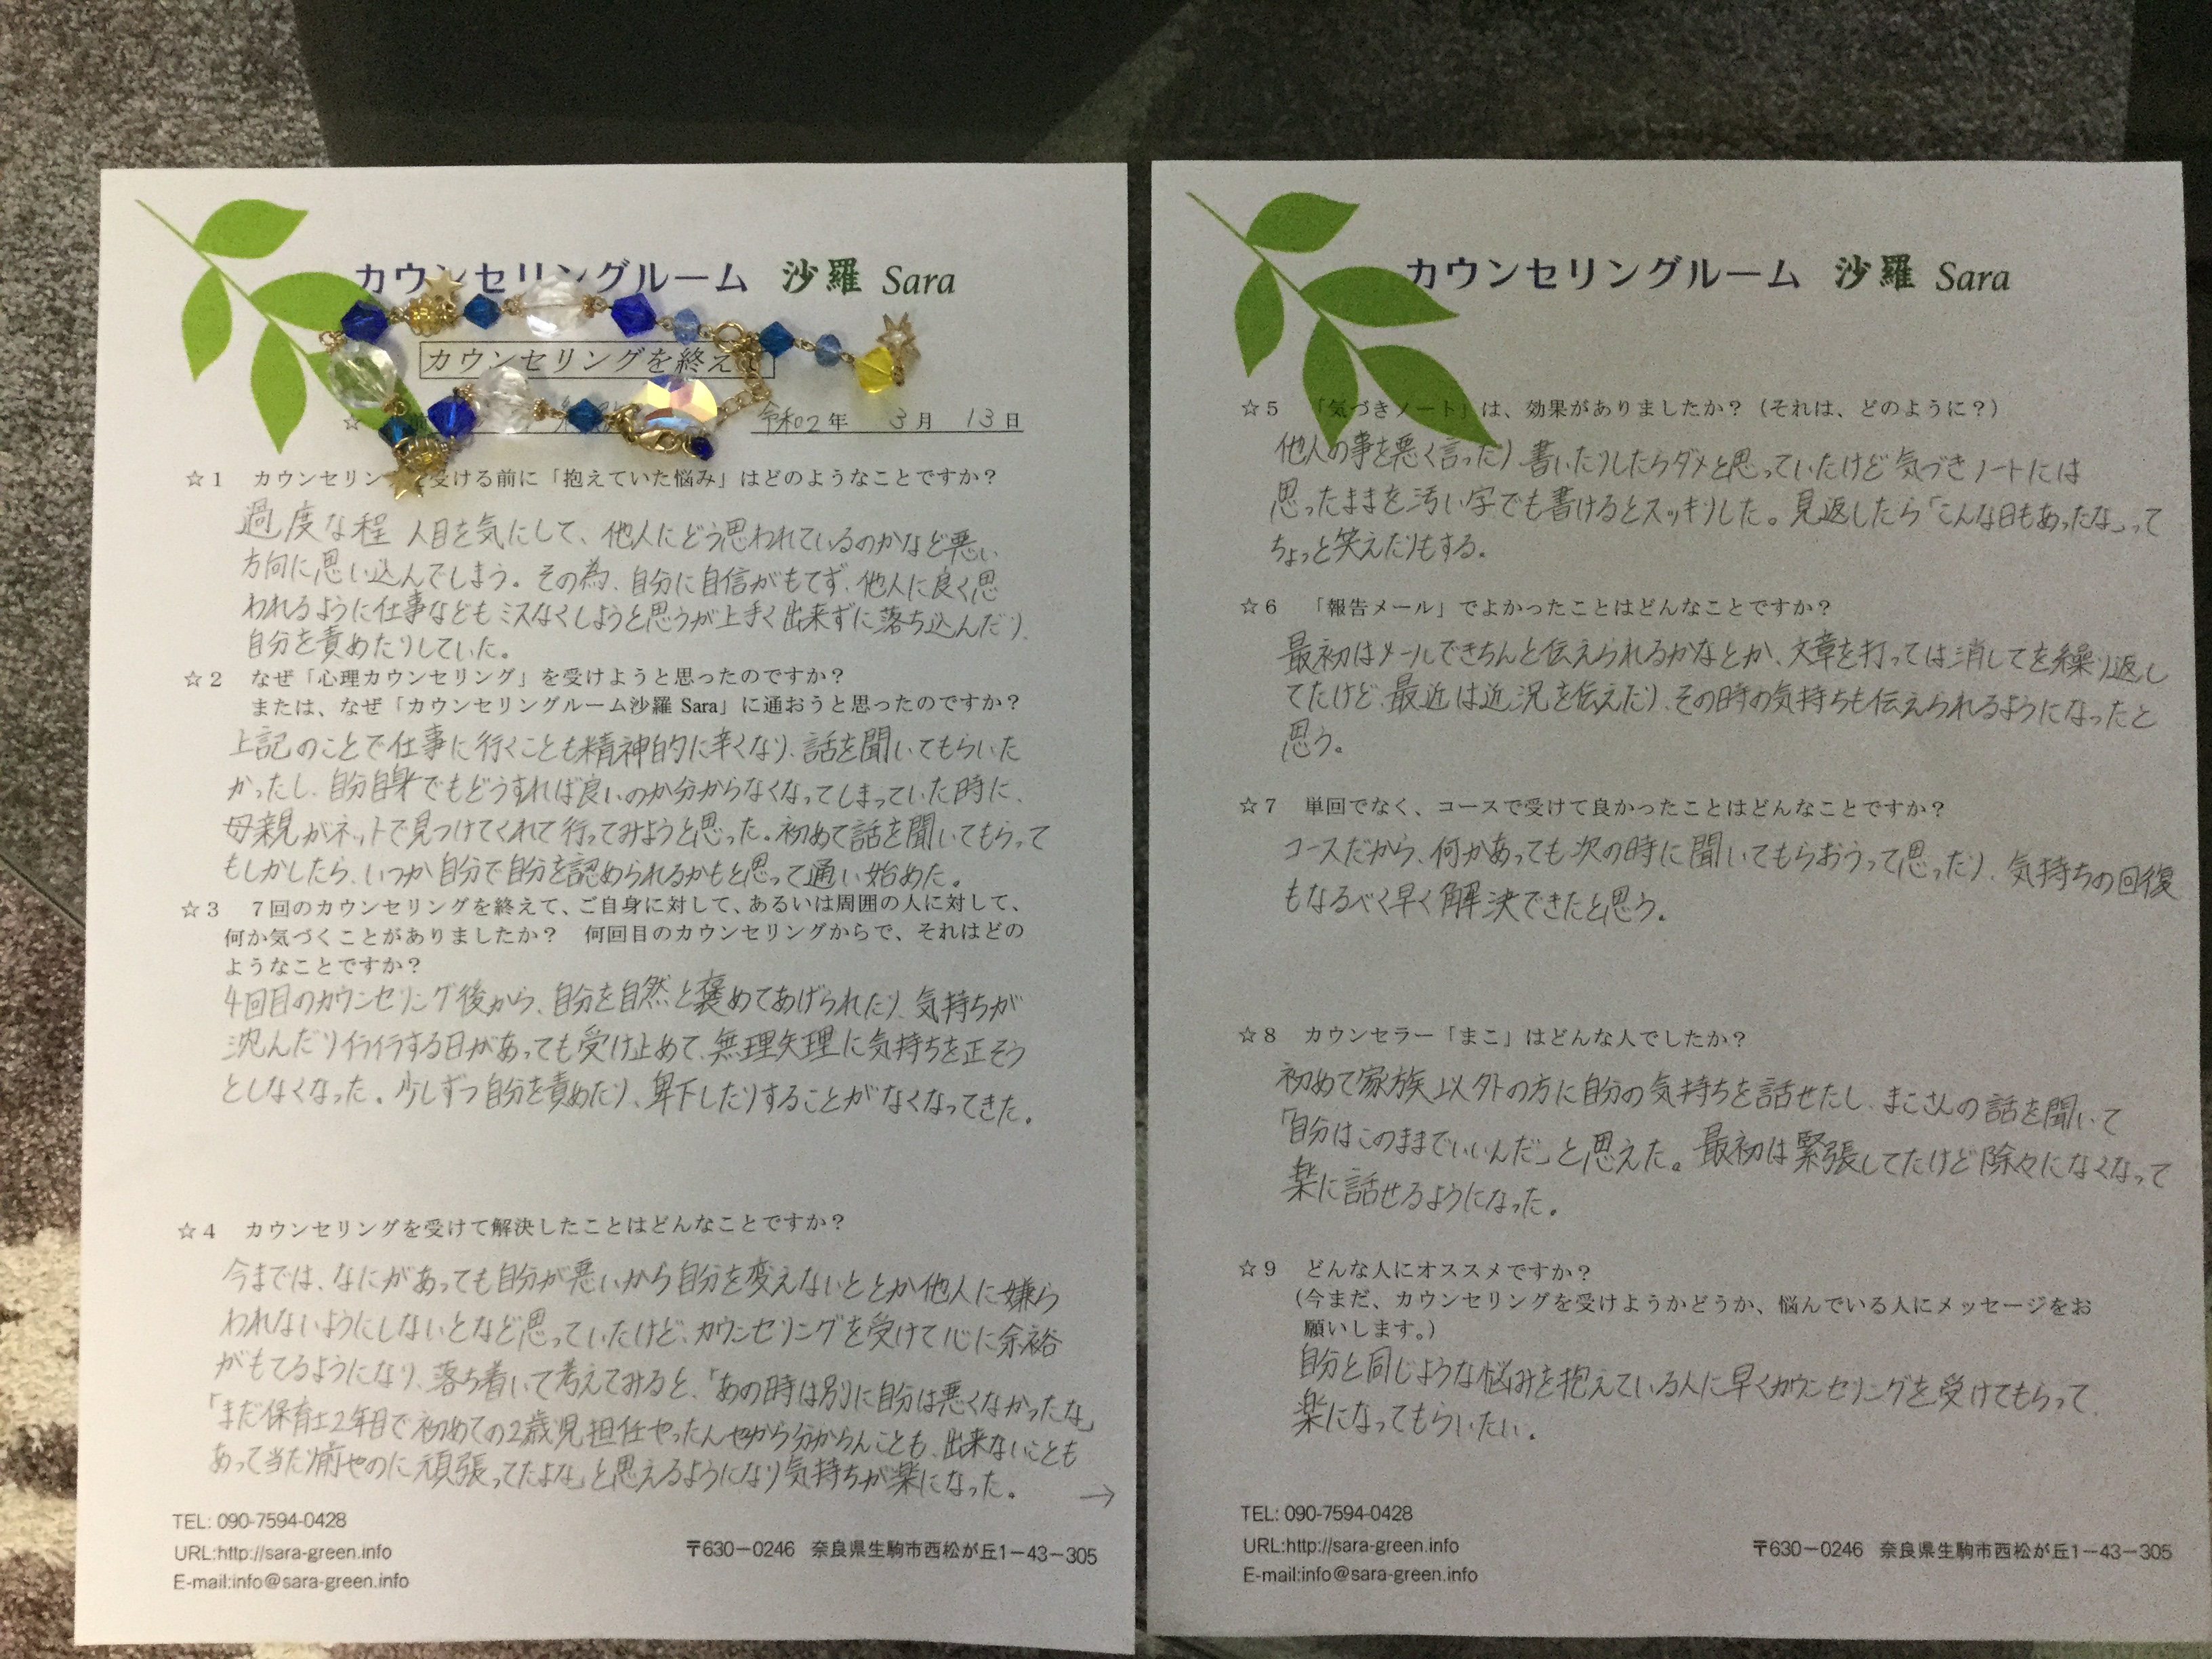 カウンセリングルーム 沙羅 Sara
カウンセリングを終え
令和02年 3月 13日
☆1 カウンセリン 受ける前に「抱えていた悩み」はどのようなことですか？
過度な程 人目を気にして、他人にどう思われているのかなど悪い
方向に思い込んでしまう。その為、自分に自信がもてず、他人に良く思
われるように仕事などもミスなくしようと思うが上手く出来ずに落ち込んだり、
自分を責めたりしていた。
☆2 なぜ「心理カウンセリング」を受けようと思ったのですか？
または、なぜ「カウンセリングルーム沙羅 Sara」に通おうと思ったのですか？
上記のことで仕事に行くことも精神的に辛くなり、話を聞いてもらいた
かったし、自分自身でもどうすれば良いのか分からなくなってしまっていた時に、
母親がネットで見つけてくれて行ってみようと思った。初めて話を聞いてもらって
もしかしたら、いつか自分で自分を認められるかもと思って通い始めた。
☆3 7回のカウンセリングを終えて、ご自身に対して、あるいは周囲の人に対して、
何か気づくことがありましたか？ 何回目のカウンセリングからで、それはどの
ようなことですか？
4回目のカウンセリング後から、自分を自然と褒めてあげられたり、気持ちが
沈んだりイライラする日があっても受け止めて、無理矢理に気持ちを正そう
としなくなった。少しずつ自分を責めたり、卑下したりすることがなくなってきた。
☆4 カウンセリングを受けて解決したことはどんなことですか？
今までは、なにがあっても自分が悪いから自分を変えないととか他人に嫌ら
われないようにしないとなど思っていたけど、カウンセリングを受けて心に余裕
がもてるようになり、落ち着いて考えてみると、「あの時は別に自分は悪くなかったな」
「まだ保育士2年目で初めての2歳児担任やったんやから分からんことも、出来ないことも
あって当たり前やのに頑張ってたよな」と思えるようになり気持ちが楽になった。 →
TEL: 090-7594-0428
URL:http://sara-green.info
E-mail:info@sara-green.info
〒630－0246 奈良県生駒市西松が丘1－43－305
カウンセリングルーム 沙羅 Sara
☆5 「気づきノート」は、効果がありましたか？（それは、どのように？）
他人の事を悪く言ったり書いたりしたらダメと思っていたけど気づきノートには
思ったままを汚い字でも書けるとスッキリした。見返したら「こんな日もあったな」って
ちょっと笑えたりもする。
☆6 「報告メール」でよかったことはどんなことですか？
最初はメールできちんと伝えられるかなとか、文章を打っては消してを繰り返し
てたけど、最近は近況を伝えたり、その時の気持ちも伝えられるようになったと
思う。
☆7 単回でなく、コースで受けて良かったことはどんなことですか？
コースだから、何かあっても次の時に聞いてもらおうって思ったり、気持ちの回復
もなるべく早く解決できたと思う。
☆8 カウンセラー「まこ」はどんな人でしたか？
初めて家族以外の方に自分の気持ちを話せたし、まこさんの話を聞いて
「自分はこのままでいいんだ」と思えた。最初は緊張してたけど除々になくなって
楽に話せるようになった。
☆9 どんな人にオススメですか？
（今まだ、カウンセリングを受けようかどうか、悩んでいる人にメッセージをお
願いします。）
自分と同じような悩みを抱えている人に早くカウンセリングを受けてもらって、
楽になってもらいたい。
TEL: 090-7594-0428
URL:http://sara-green.info
E-mail:info@sara-green.info
〒630－0246 奈良県生駒市西松が丘1－43－305